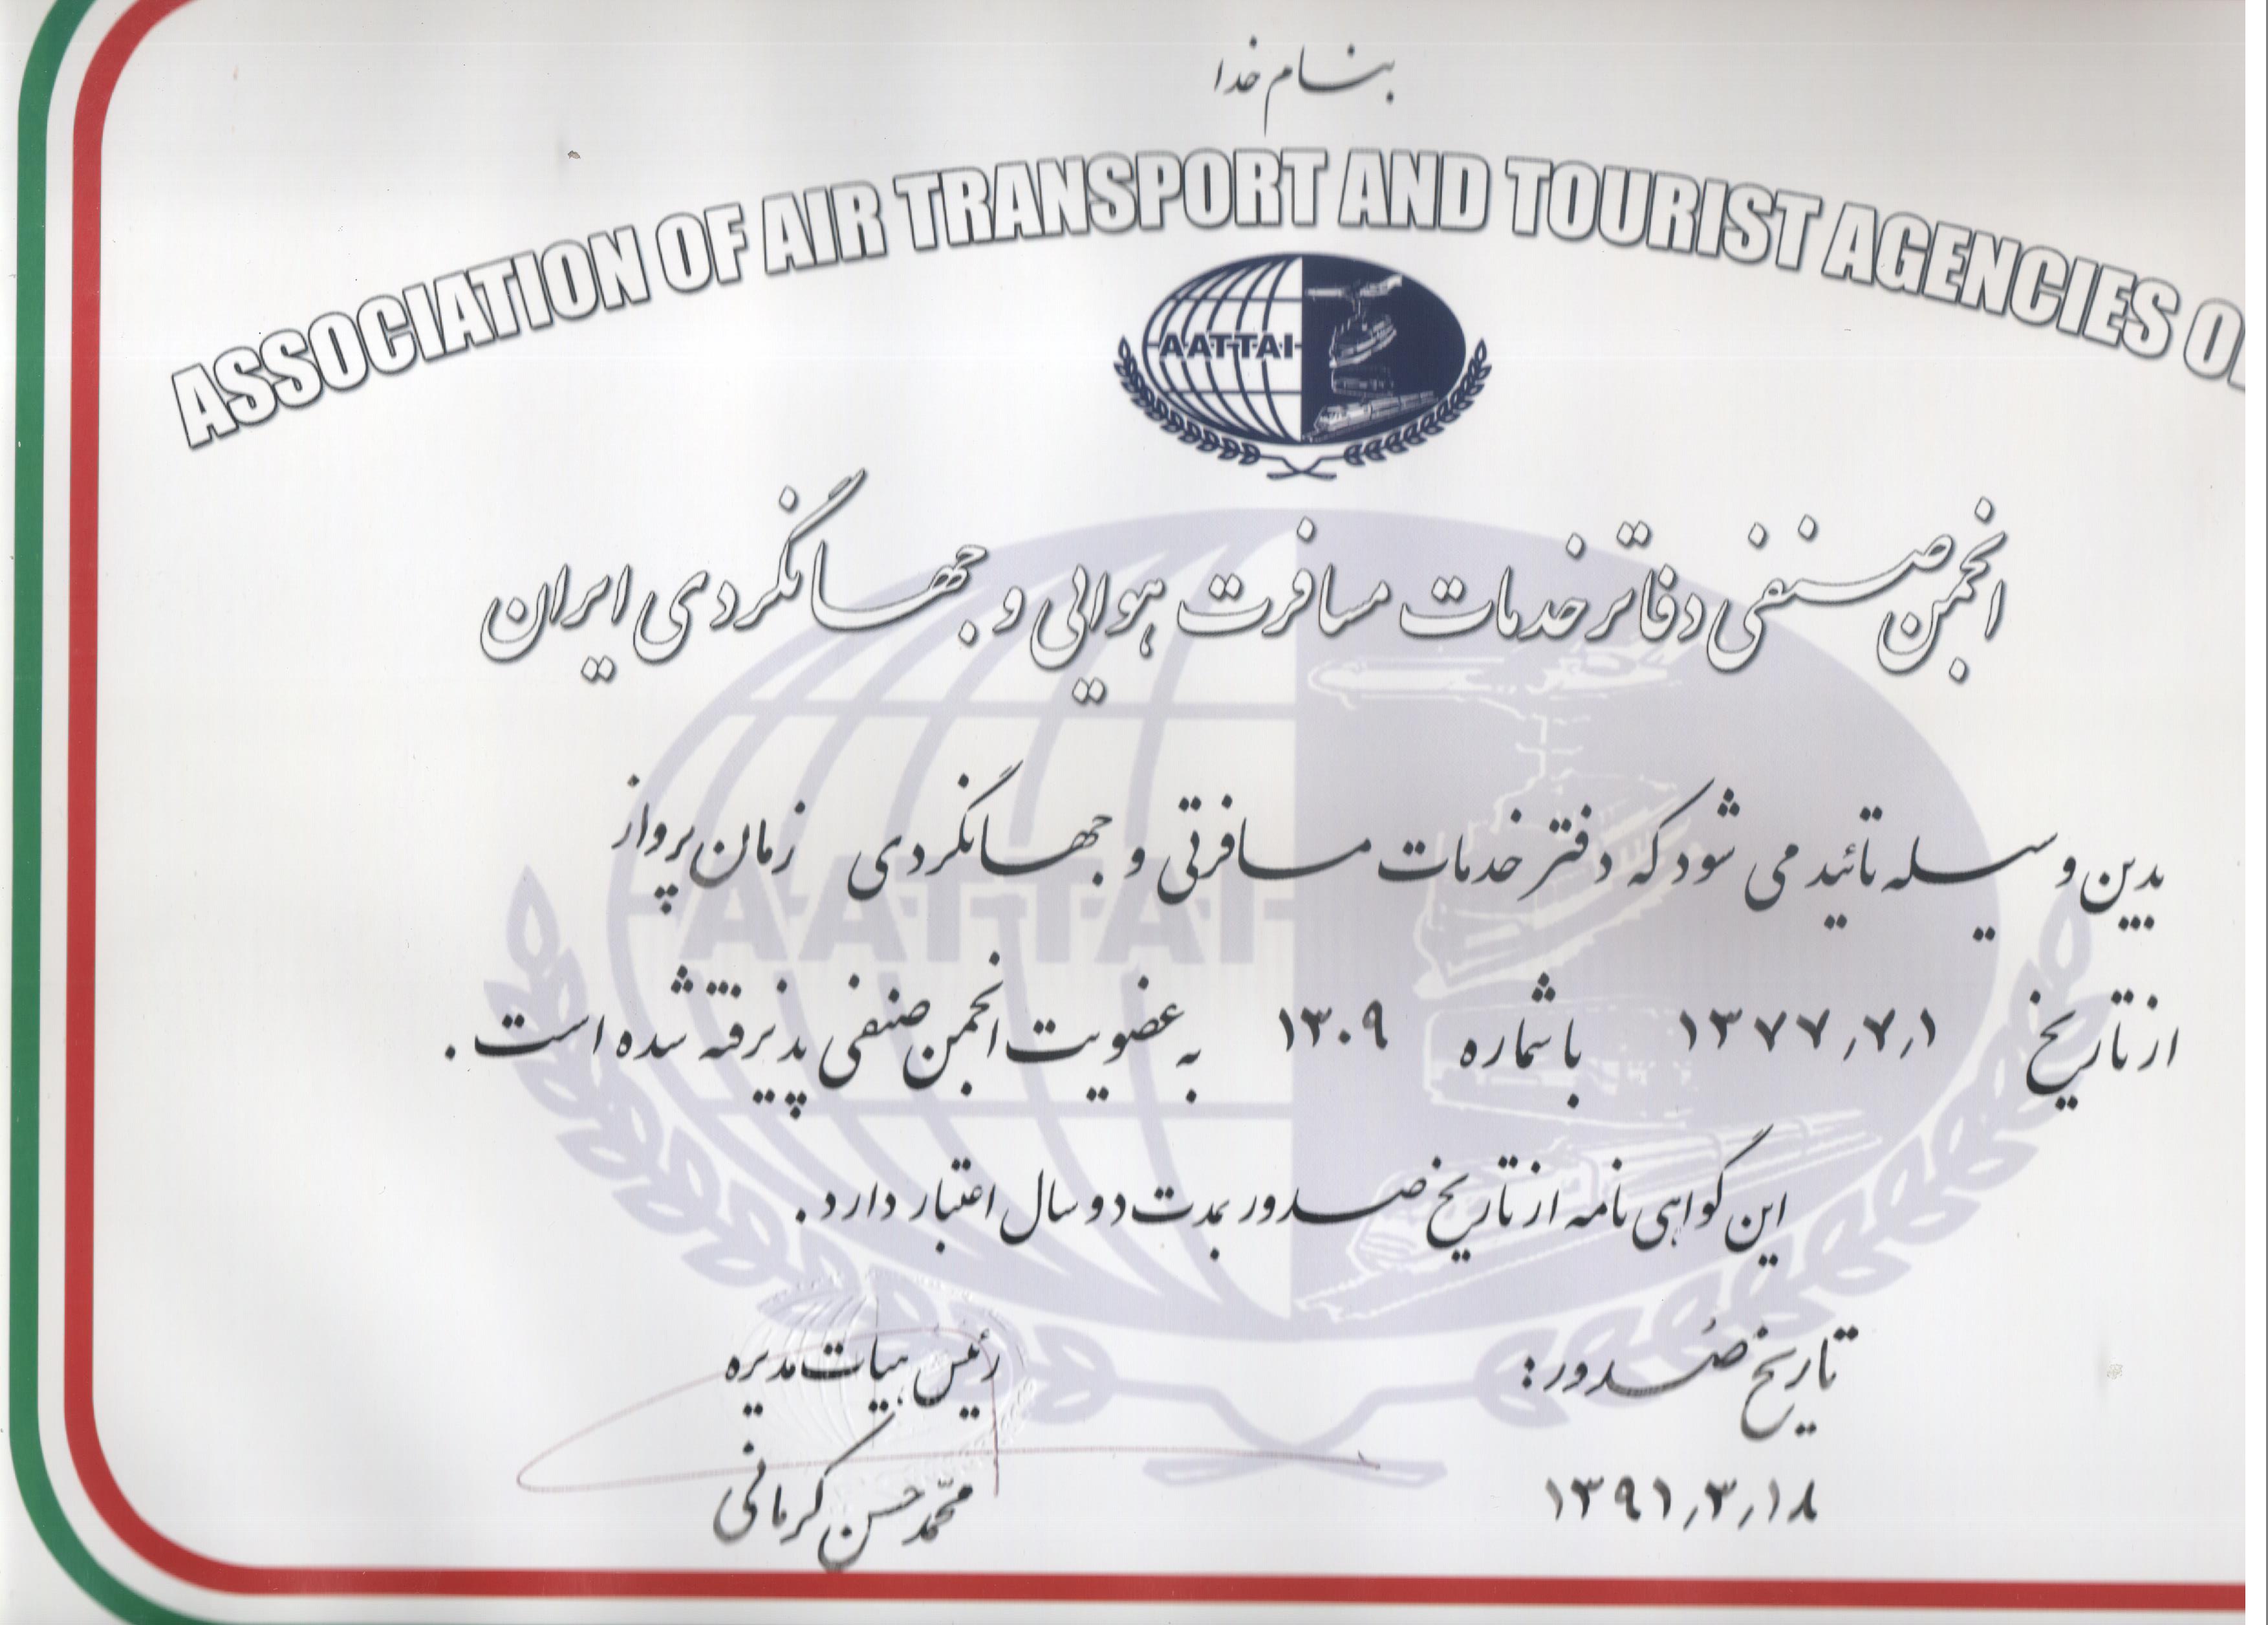 بنام خدا
ASSOCIATION OF AIR TRANSPORT AND TOURIST AGENCIES O
AATTAI
انجمن صنفی دفاتر خدمات مسافرت هوایی و جهانگردی ایران
بدین وسیله تائید می شود که دفتر خدمات مسافرتی و جهانگردی زمان پرواز
از تاریخ ۱۳۷۷٫۷٫۱ با شماره ۱۳۰۹ به عضویت انجمن صنفی پذیرفته شده است .
این گواهی نامه از تاریخ صدور بمدت دو سال اعتبار دارد .
تاریخ صدور :
۱۳۹۱٫۳٫۱۸
رئیس هیات مدیره
محمد حسن کرمانی
AATTAI